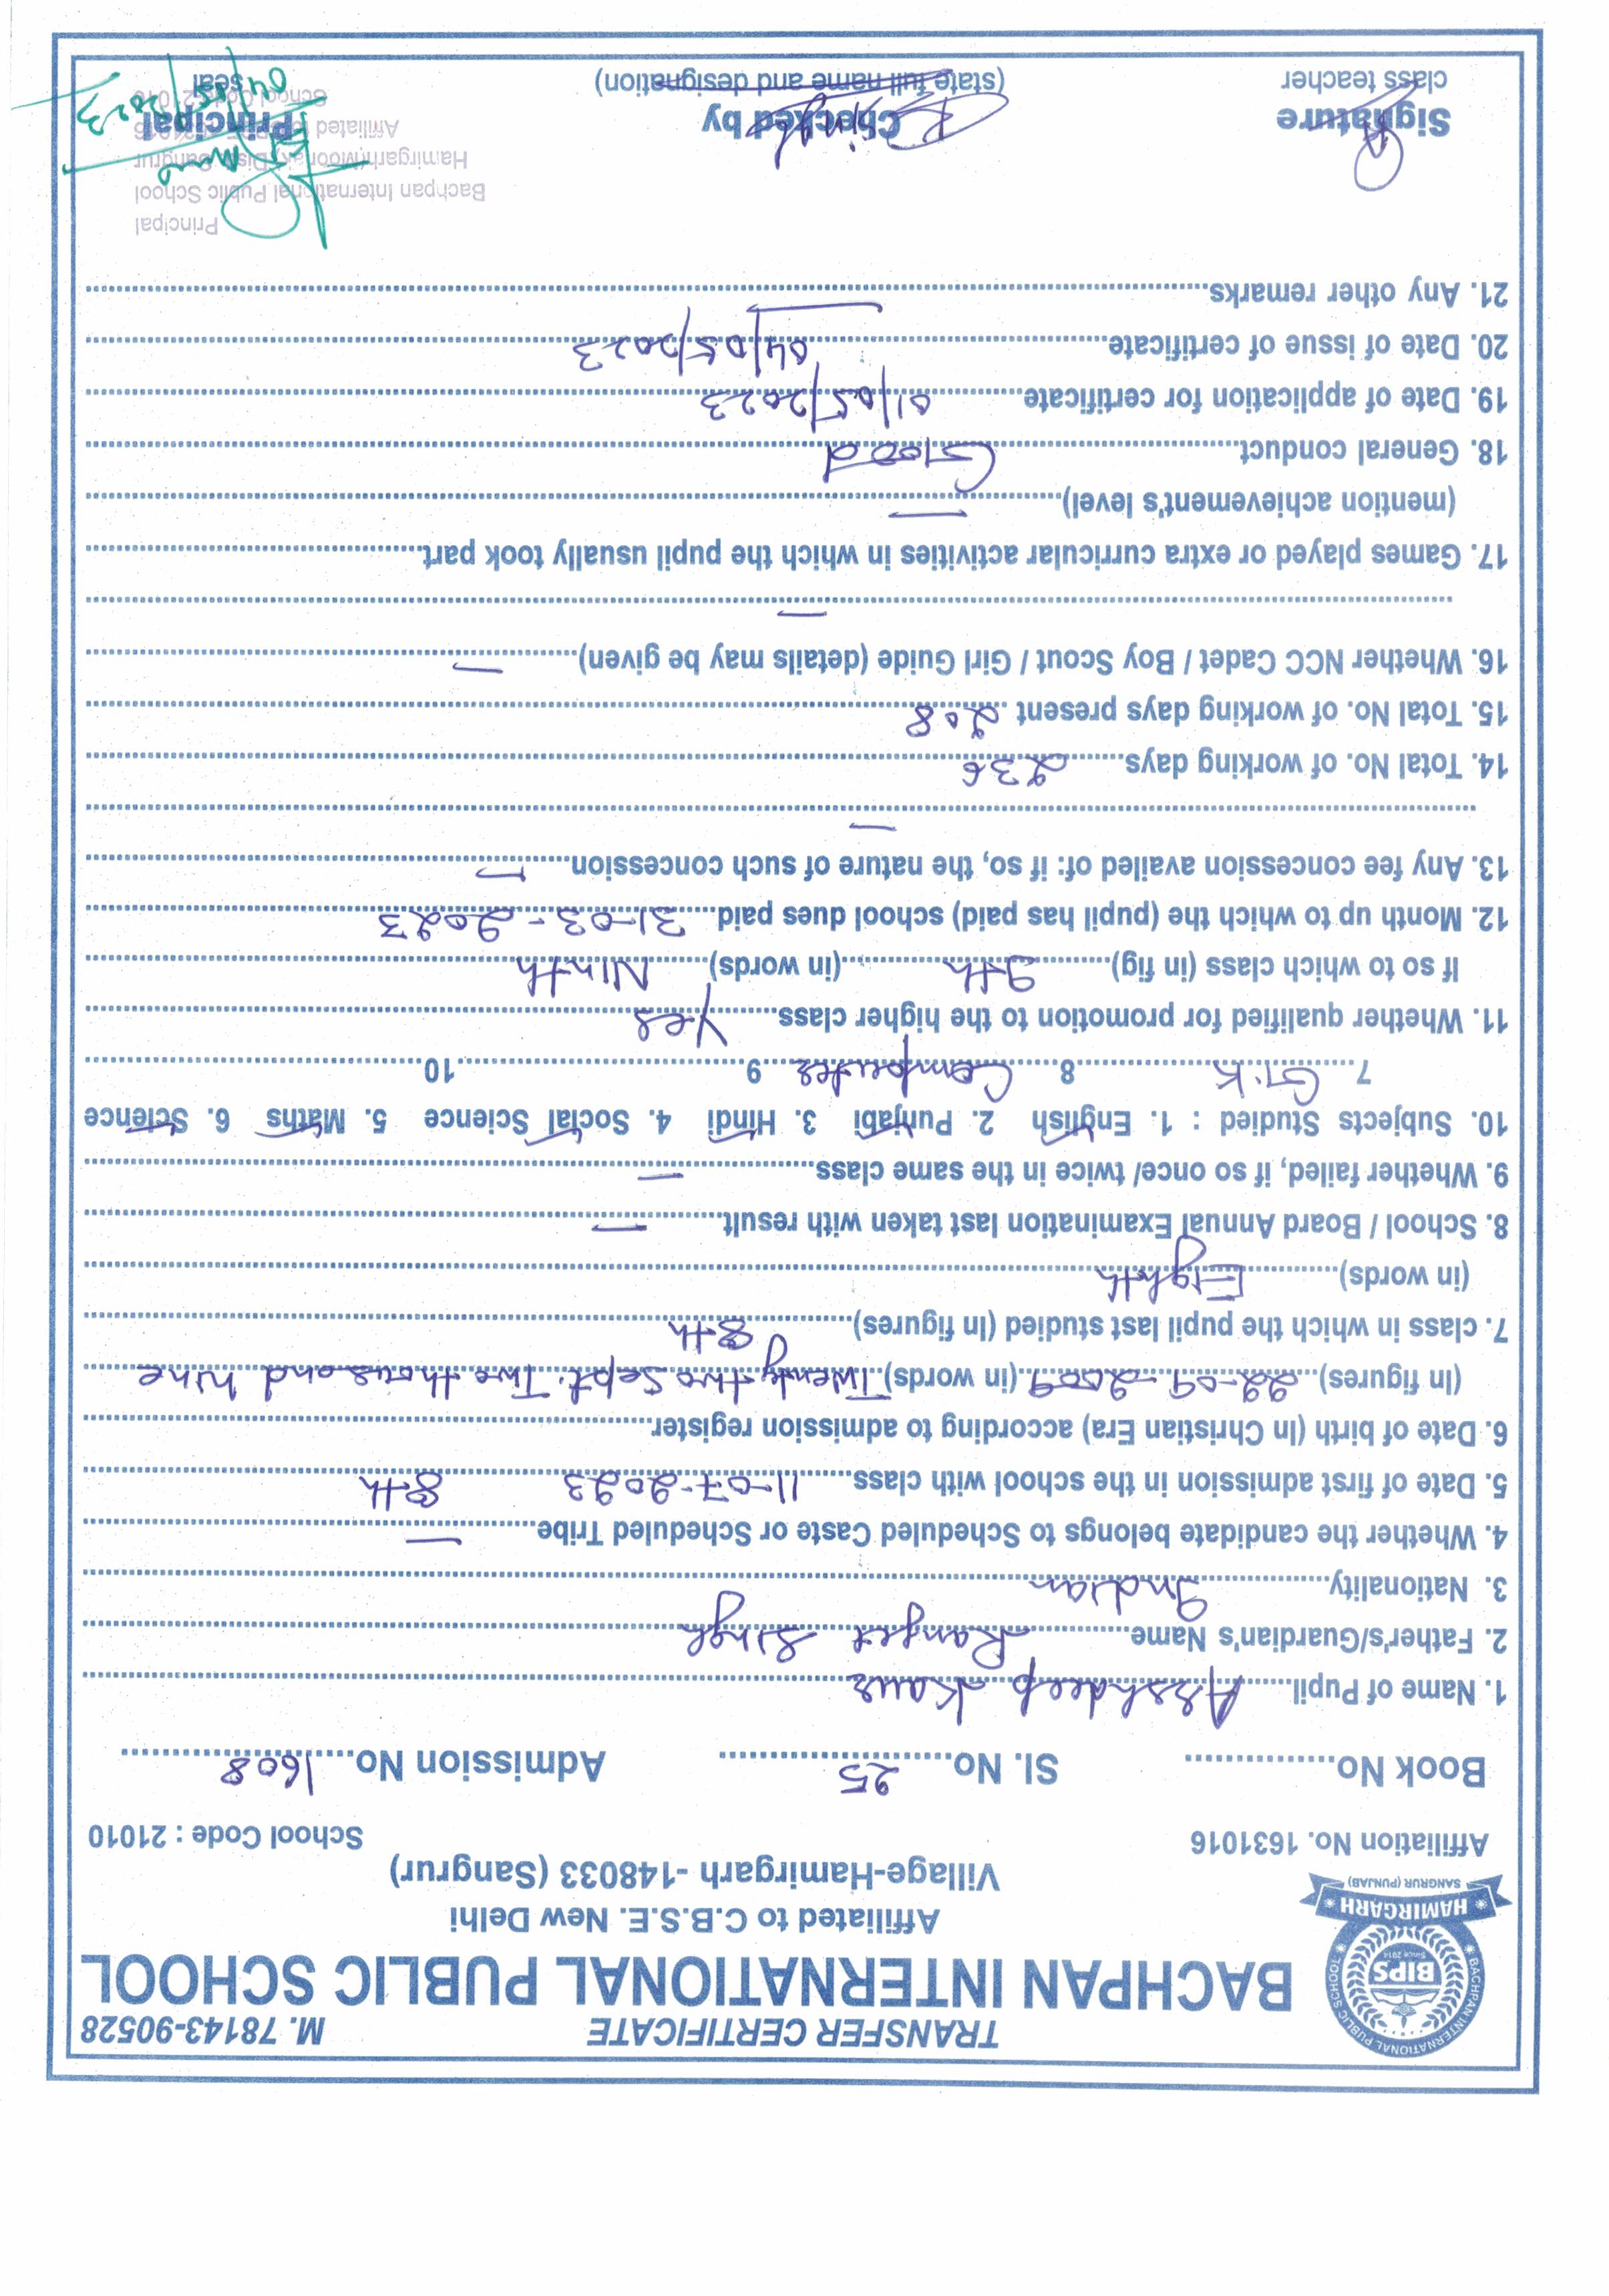 TRANSFER CERTIFICATE M. 78143-90528
BACHPAN INTERNATIONAL PUBLIC SCHOOL
BACHPAN INTERNATIONAL PUBLIC SCHOOL
BIPS
Since 2014
HAMIRGARH
SANGRUR (PUNJAB)
Affiliated to C.B.S.E. New Delhi
Village-Hamirgarh -148033 (Sangrur)
Affiliation No. 1631016 School Code : 21010
Book No............... Sl. No. 25 Admission No. 1608
1. Name of Pupil Arshdeep Kaur
2. Father's/Guardian's Name Ranjeet Singh
3. Nationality Indian
4. Whether the candidate belongs to Scheduled Caste or Scheduled Tribe —
5. Date of first admission in the school with class 11-07-2023 8th
6. Date of birth (In Christian Era) according to admission register
(In figures) 22-09-2009 (in words) Twenty two Sept. Two thousand nine
7. class in which the pupil last studied (In figures) 8th
(in words) Eighth
8. School / Board Annual Examination last taken with result —
9. Whether failed, if so once/ twice in the same class —
10. Subjects Studied : 1. English 2. Punjabi 3. Hindi 4. Social Science 5. Maths 6. Science
7 G.K 8 Computer 9 10
11. Whether qualified for promotion to the higher class Yes
If so to which class (in fig) 9th (in words) Ninth
12. Month up to which the (pupil has paid) school dues paid 31-03-2023
13. Any fee concession availed of: if so, the nature of such concession —
—
14. Total No. of working days 236
15. Total No. of working days present 208
16. Whether NCC Cadet / Boy Scout / Girl Guide (details may be given) —
—
17. Games played or extra curricular activities in which the pupil usually took part
(mention achievement's level) —
18. General conduct Good
19. Date of application for certificate 01/05/2023
20. Date of issue of certificate 04/05/2023
21. Any other remarks —
Principal
Bachpan International Public School
Hamirgarh(Moonak) Distt. Sangrur
Affiliated to
School Code-21010
Signature Checked by Principal
class teacher (state full name and designation) seal
04/05/2023